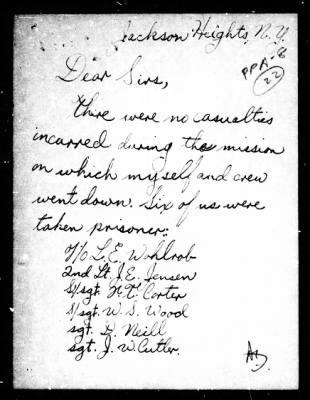 Jackson Heights, N.Y.
PPA-8
22
Dear Sirs,
there were no casualties
incurred during the mission
on which myself and crew
went down. Six of us were
taken prisoner:
F/O L. E. Wohlrob
2nd Lt. J. E. Jensen
S/sgt. H. T. Carter
S/sgt. W. S. Wood
sgt. D. Neill
sgt. J. W. Cutler.